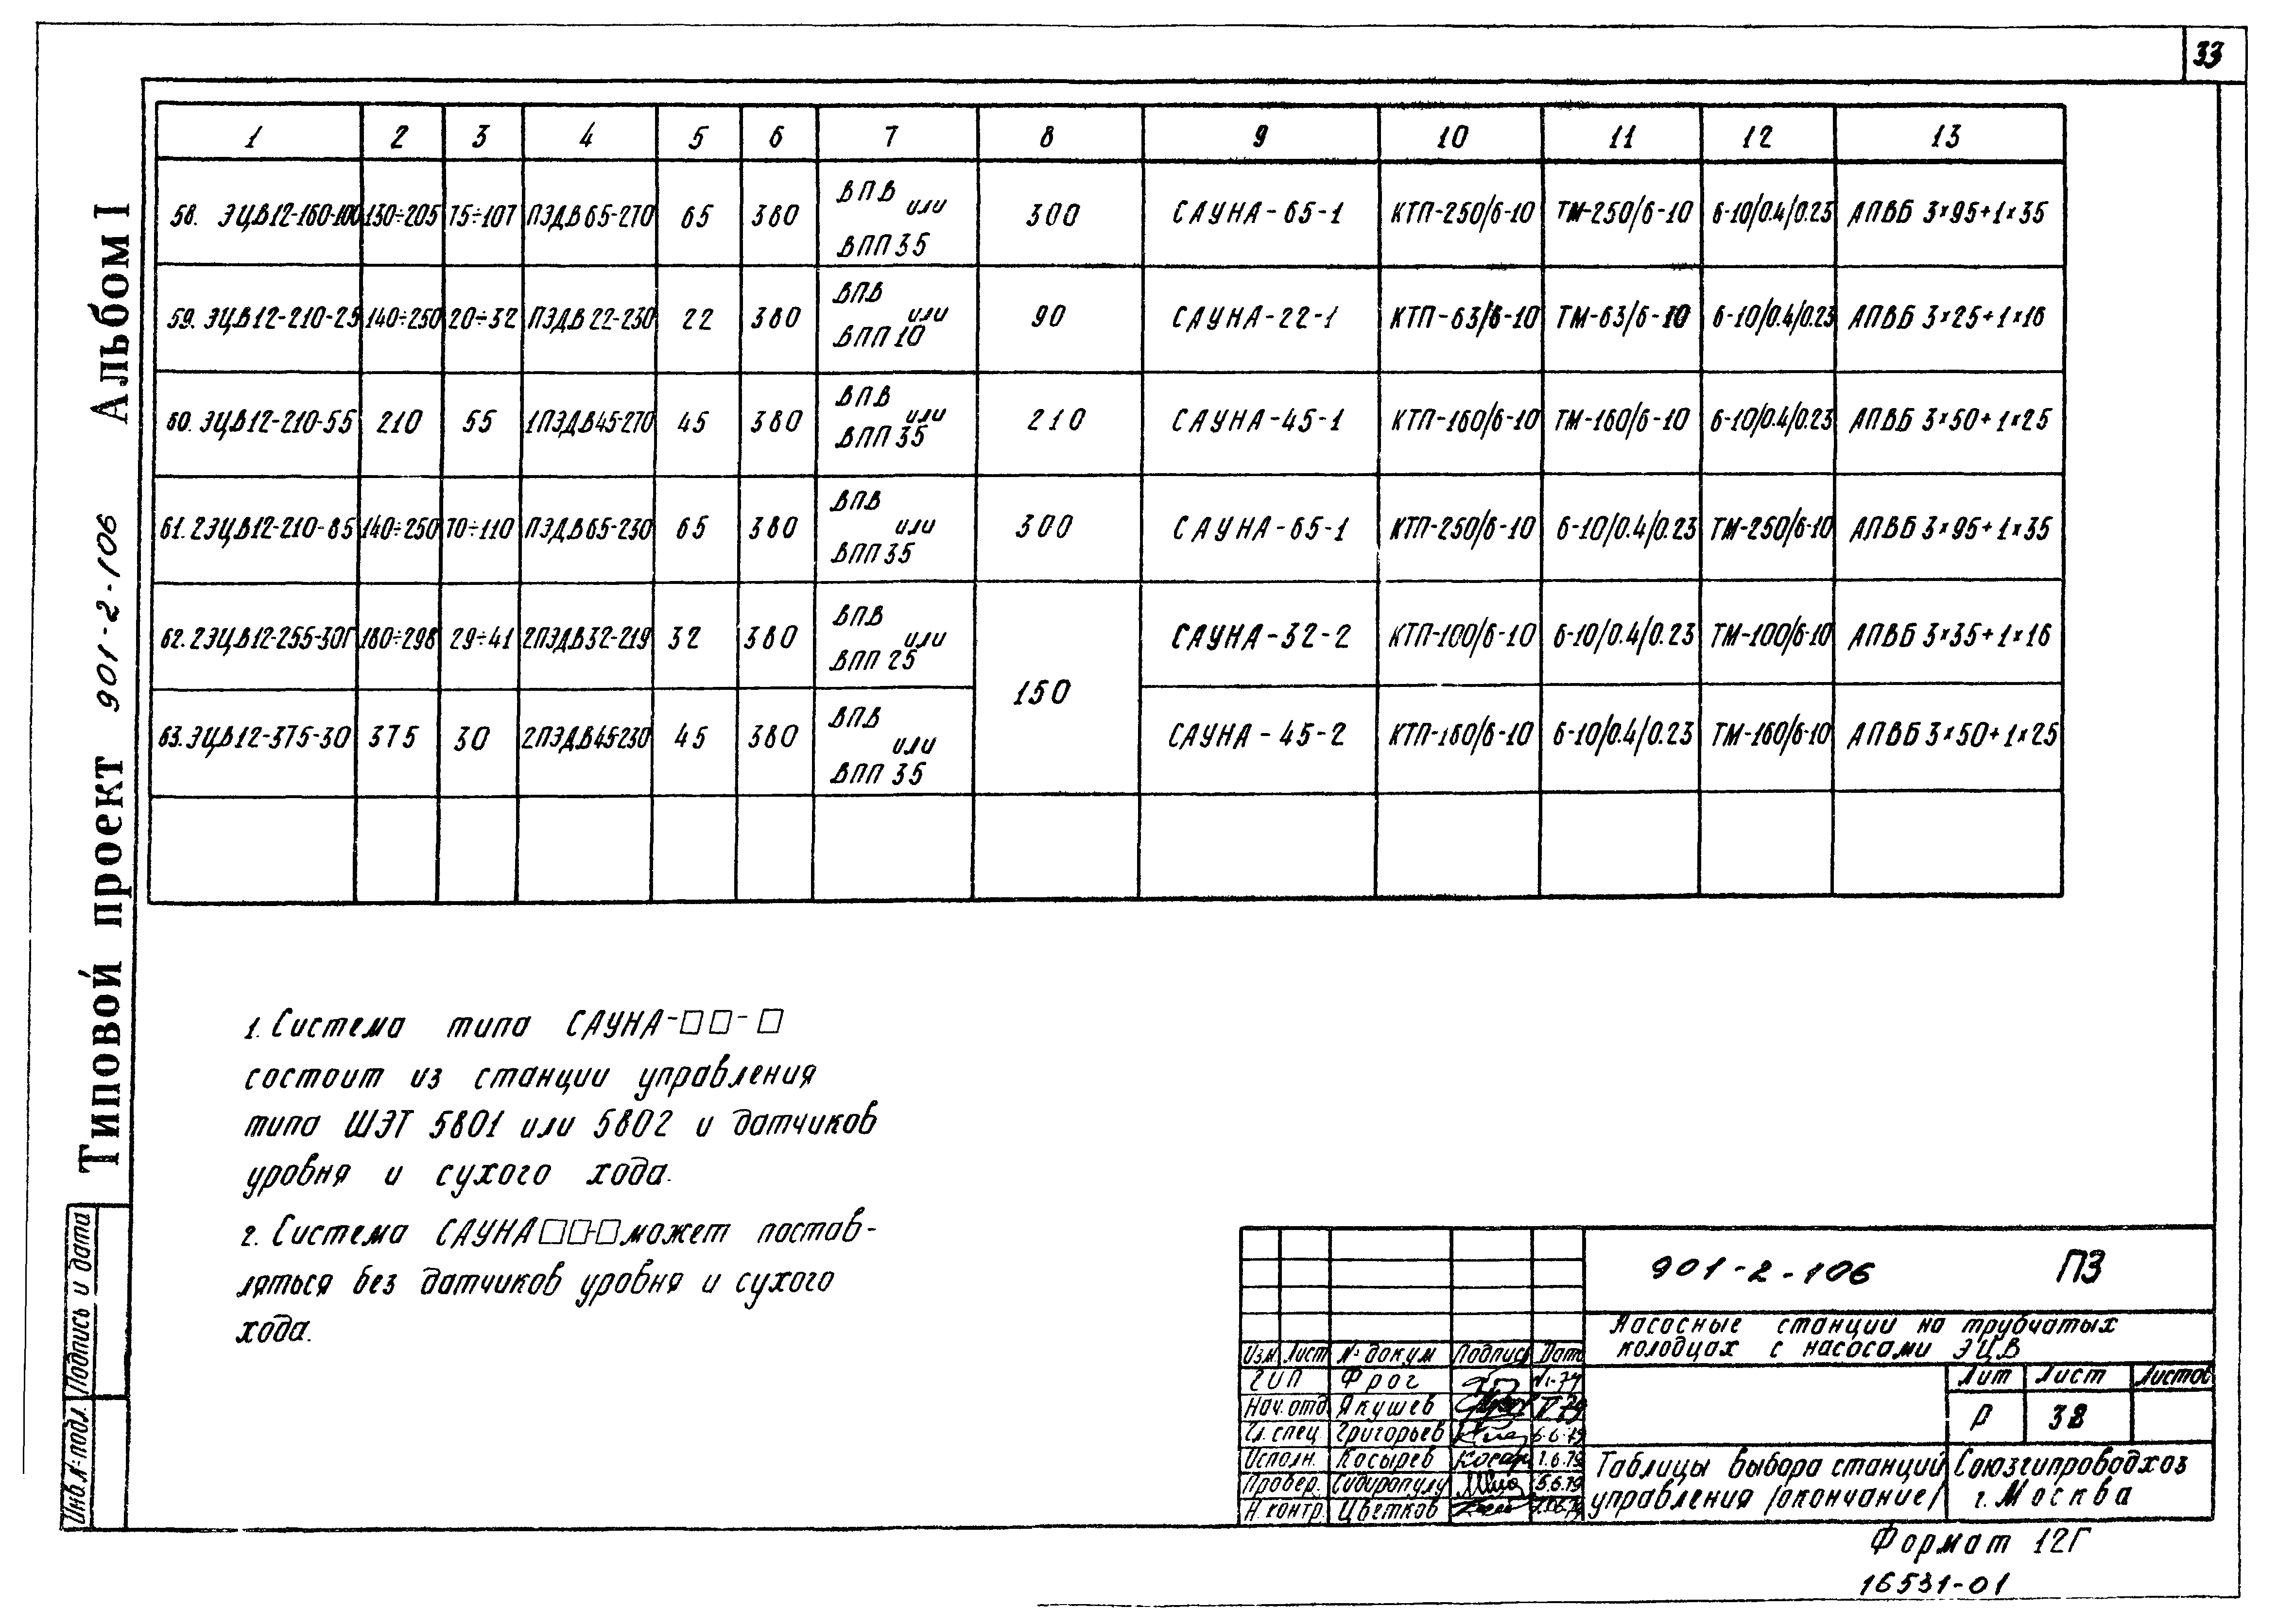 33
1 2 3 4 5 6 7 8 9 10 11 12 13
58. ЭЦВ12-160-100 130÷205 75÷107 ПЭДВ65-270 65 380 ВПВ или ВПП35 300 САУНА-65-1 КТП-250/6-10 ТМ-250/6-10 6-10/0.4/0.23 АПВБ 3×95+1×35
59. ЭЦВ12-210-25 140÷250 20÷32 ПЭДВ22-230 22 380 ВПВ или ВПП10 90 САУНА-22-1 КТП-63/6-10 ТМ-63/6-10 6-10/0.4/0.23 АПВБ 3×25+1×16
60. ЭЦВ12-210-55 210 55 1ПЭДВ45-270 45 380 ВПВ или ВПП35 210 САУНА-45-1 КТП-160/6-10 ТМ-160/6-10 6-10/0.4/0.23 АПВБ 3×50+1×25
61. 2ЭЦВ12-210-85 140÷250 70÷110 ПЭДВ65-230 65 380 ВПВ или ВПП35 300 САУНА-65-1 КТП-250/6-10 6-10/0.4/0.23 ТМ-250/6-10 АПВБ 3×95+1×35
62. 2ЭЦВ12-255-30Г 180÷298 29÷41 2ПЭДВ32-219 32 380 ВПВ или ВПП 25 150 САУНА-32-2 КТП-100/6-10 6-10/0.4/0.23 ТМ-100/6-10 АПВБ 3×35+1×16
63. ЭЦВ12-375-30 375 30 2ПЭДВ45-230 45 380 ВПВ или ВПП 35 САУНА-45-2 КТП-160/6-10 6-10/0.4/0.23 ТМ-160/6-10 АПВБ 3×50+1×25
Типовой проект 901-2-106 Альбом I
1. Система типа САУНА-□□-□
состоит из станции управления
типа ШЭТ 5801 или 5802 и датчиков
уровня и сухого хода.
2. Система САУНА□□-□может постав-
ляться без датчиков уровня и сухого
хода.
Подпись и дата
Инв.№ подл.
901-2-106 ПЗ
Насосные станции на трубчатых
колодцах с насосами ЭЦВ
Изм Лист № докум Подпись Дата
ГИП Фрог
Нач.отд Якушев
Гл. спец Григорьев 6.6.79
Исполн. Косырев 1.6.79
Провер. Сидиропулу 5.6.79
Н. контр. Цветков
Лит Лист Листов
Р 38
Таблицы выбора станций
управления /окончание/
Союзгипроводхоз
г. Москва
Формат 12Г
16531-01